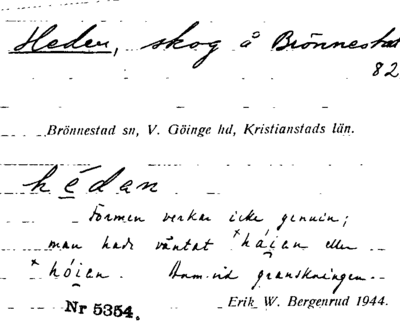 Heden, skog å Brönnestad
82
Brönnestad sn, V. Göinge hd, Kristianstads län.
hédan
Formen verkar icke genuin;
man hade väntat *háien eller
*hóien. Anm. vid granskningen.
Nr 5354. Erik W. Bergenrud 1944.